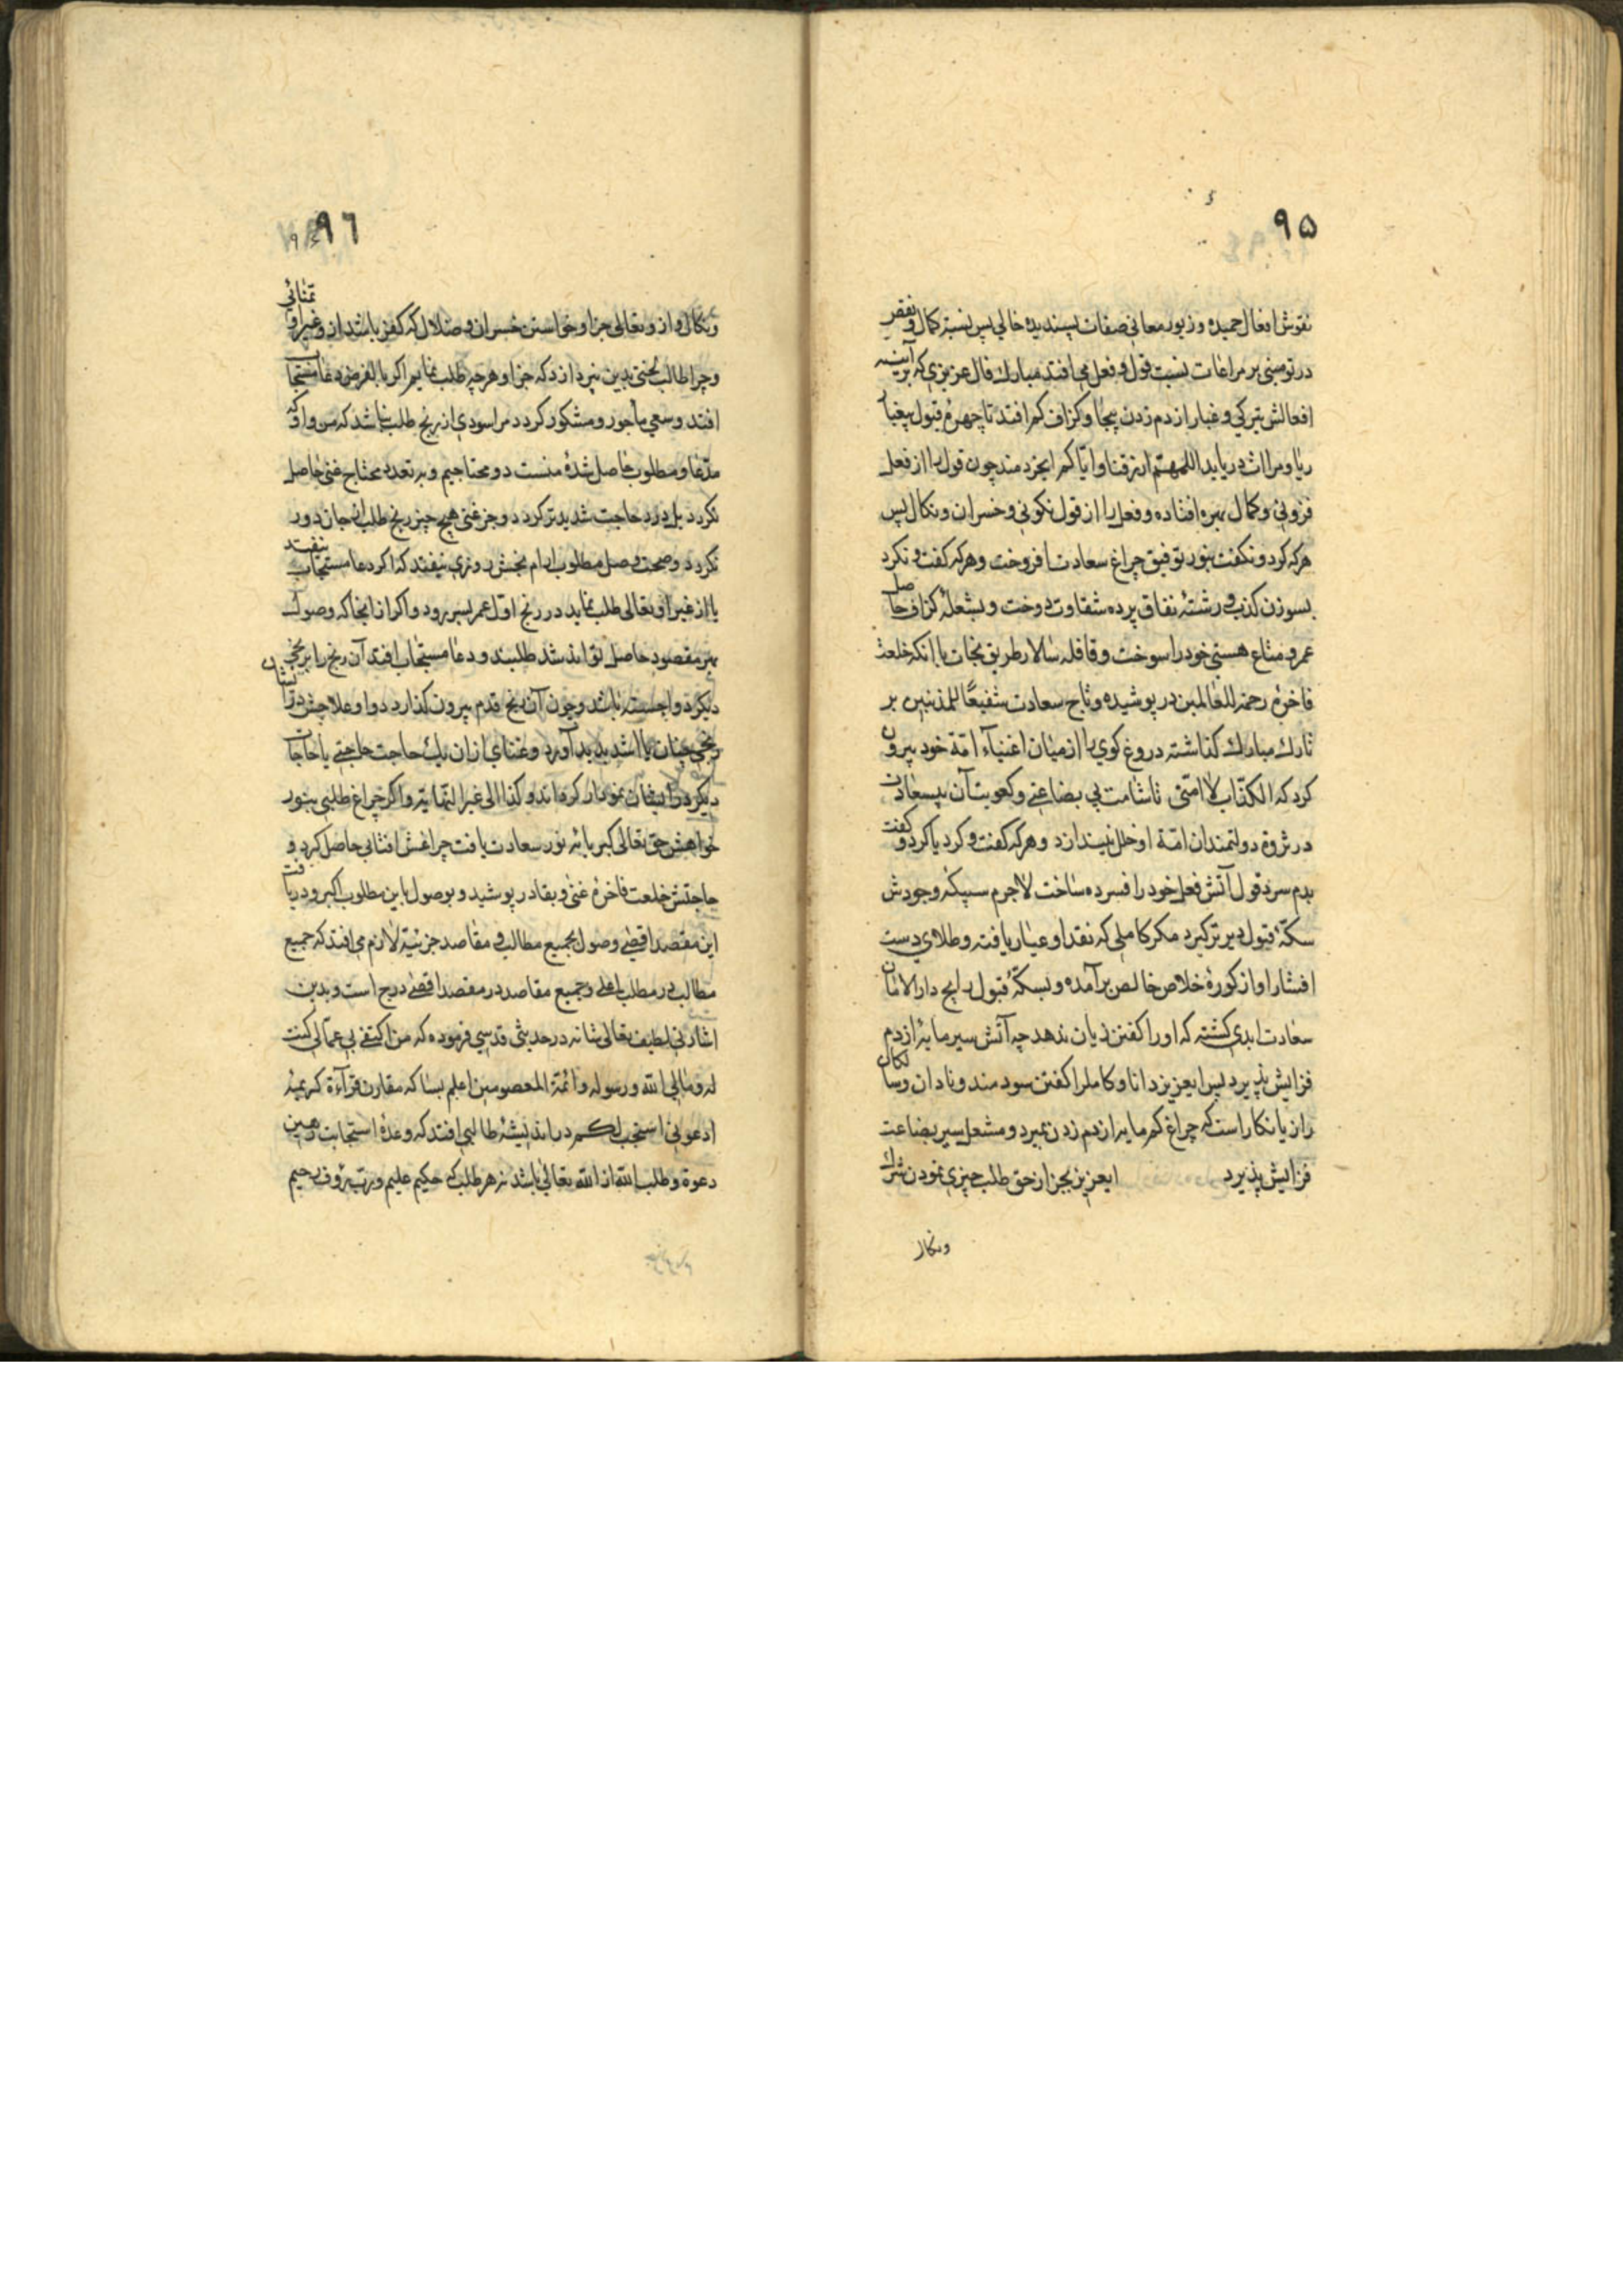 ۹۵
نقوش افعال حمیده و زیور معانی صفات پسندیده خالی پس نسبة کمال و نقص
در تو مبنی بر مراعات نسبت قول و فعل می افتد مبارك فال عزیزی که آیینه
افعالش بتیرکی و غبار از دم زدن بیجا و کزاف کم افتد تا چهره قبول بیغبار
ریا و مراات دریابد اللهم ارزقنا و ایاکم ایخردمند چون قول را از فعل
فزونی و کمال بهره افتاده و فعل را از قول نکونی و خسران و نکال پس
هر که کرد و نکفت بنور توفیق چراغ سعادت افروخت و هر که کفت و نکرد
بسوزن کذب و رشته نفاق پرده شقاوت دوخت و بشعله کزاف حاصل
عمر و متاع هستی خود را سوخت و قافله سالار طریق نجات با انکه خلعت
فاخره رحمة للعالمین در پوشیده و تاج سعادت شفیعًا للمذنبین بر
تارك مبارك کذاشته دروغ کوی را از میان اغنیآء امّة خود بیرون
کرد که الکذّاب لا امّتی تا شامت بی بضاعتی و کعوبت آن بیسعادت
در ثروة دولتمندان امّة او خلل نیندازد و هر که کفت و کرد یا کرد و کفت
بدم سرد قول آتش فعل خود را افسرده ساخت لاجرم سبیکه وجودش
سکّه قبول دیرتر کیرد مکر کاملی که نقد او عیار یافته و طلای دست
افشار او از کوره خلاص خالص برآمده و بسکّه قبول رایج دار الامان
سعادت ابدی کشته که او را کفتن زیان ندهد چه آتش سیر مایه از دم
فزایش پذیرد پس ایعزیز دانا و کامل را کفتن سودمند و نادان و سالکان
را زیانکار است که چراغ کم مایه از دم زدن بمیرد و مشعل سیر بضاعت
فزایش پذیرد ایعزیز بجز از حق طلب چیزی نمودن شرك
ونکال
۹٦
ونکال و از و تعالی جز او خواستن خسران و ضلال که کفر باشد از و غیر او تمنائی
و چرا طالب لختی بدین نپردازد که جز او هر چه طلب نمایم اکر بالفرض دعا مستجاب
افتد و سعی مأجور و مشکور کردد مرا سودی از رنج طلب نباشد که من و او که
مدّعا و مطلوب حاصل شده منست دو محتاجیم و به تعدد محتاج غنی حاصل
نکردد بل درد حاجت شدیدتر کردد و جز غنی هیچ چیز رنج طلب از جان دور
نکردد و صحت وصل مطلوب ارام بخش روزی نیفتد که اکر دعا مستجاب نیفتد
یا از غیر او تعالی طلب نماید در رنج اوّل عمر بسر رود و اکر از انجا که وصول
بهر مقصود حاصل تواند شد طلبند و دعا مستجاب افتد آن رنج را برنجی
دیکر دوا جسته باشد و چون آن رنج قدم بیرون کذارد دوا و علاجش در انشان
رنجی چنان یا اشد پدید آورد و غنای از ان یك حاجت حاجتی یا حاجات
دیکر در ایشان نمودار کرداند و کذا الی غیر النهایة و اکر چراغ طلبی بنور
خواهش حق تعالی کبریائه نور سعادت یافت چراغش افتابی حاصل کرد و
حاجتش خلعت فاخره غنی و بقا در پوشید و بوصول باین مطلوب اکبر و دریافت
این مقصد اقصی وصول بجمیع مطالب و مقاصد جزئیة لازم می افتد که جمیع
مطالب در مطلب اعلی و جمیع مقاصد در مقصد اقصی درج است و بدین
اشارتی لطیف تعالی شانه در حدیثی قدسی فرموده که من اکتفی بی عمّا لی کنت
له و ما لی الله و رسوله و ائمّة المعصومین اعلم بسا که مقارن قرآءة کریمه
ادعونی استجب لکم در اندیشه طالبی افتد که وعده استجابت رهین
دعوة و طلب الله از الله تعالی باشد نه هر طلب که حکیم علیم و ربّ رؤف رحیم